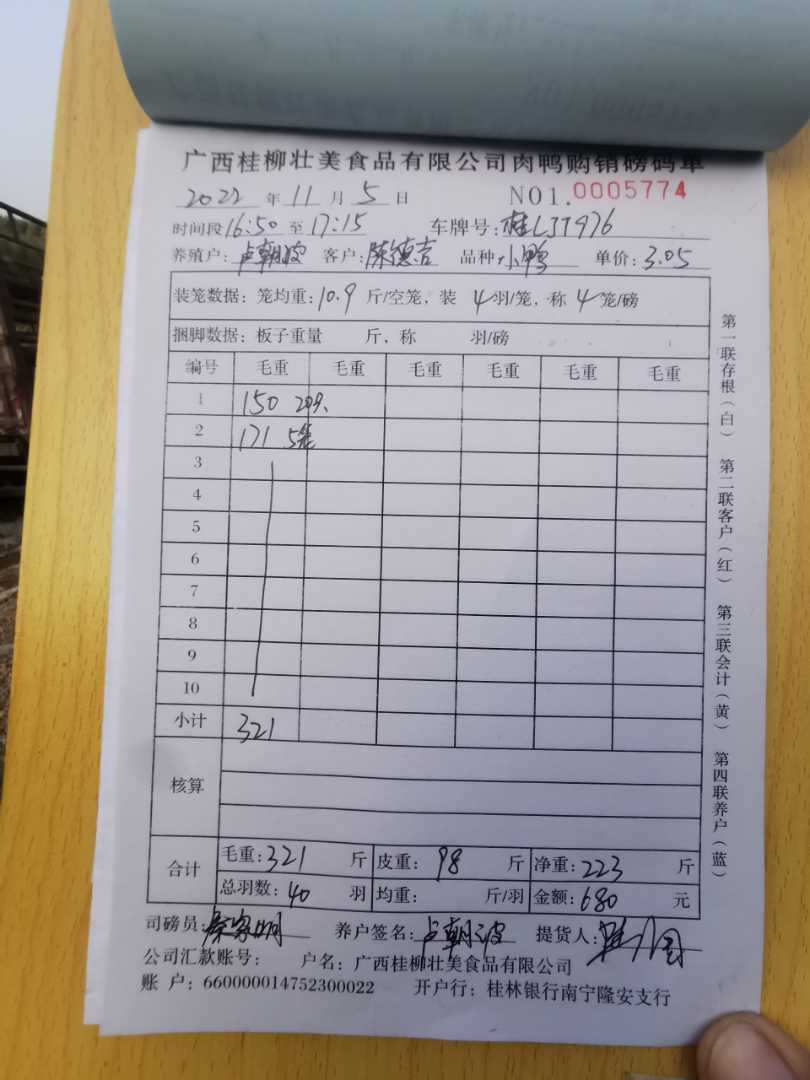 广西桂柳壮美食品有限公司肉鸭购销磅码单
2022 年 11 月 5 日 NO1.0005774
时间段 16:50 至 17:15 车牌号:桂LJT976
养殖户:卢朝波 客户:陈德吉 品种:小鸭 单价:3.05
装笼数据:笼均重:10.9 斤/空笼,装 4 羽/笼,称 4 笼/磅
捆脚数据:板子重量 斤,称 羽/磅
编号 毛重 毛重 毛重 毛重 毛重 毛重
1 150
2 171 5笼
3
4
5
6
7
8
9
10
小计 321
核算
合计 毛重:321 斤 皮重:98 斤 净重:223 斤
总羽数:40 羽 均重: 斤/羽 金额:680 元
司磅员: 养户签名:卢朝波 提货人:
公司汇款账号: 户名:广西桂柳壮美食品有限公司
账 户:660000014752300022 开户行:桂林银行南宁隆安支行
第一联存根(白) 第二联客户(红) 第三联会计(黄) 第四联养户(蓝)